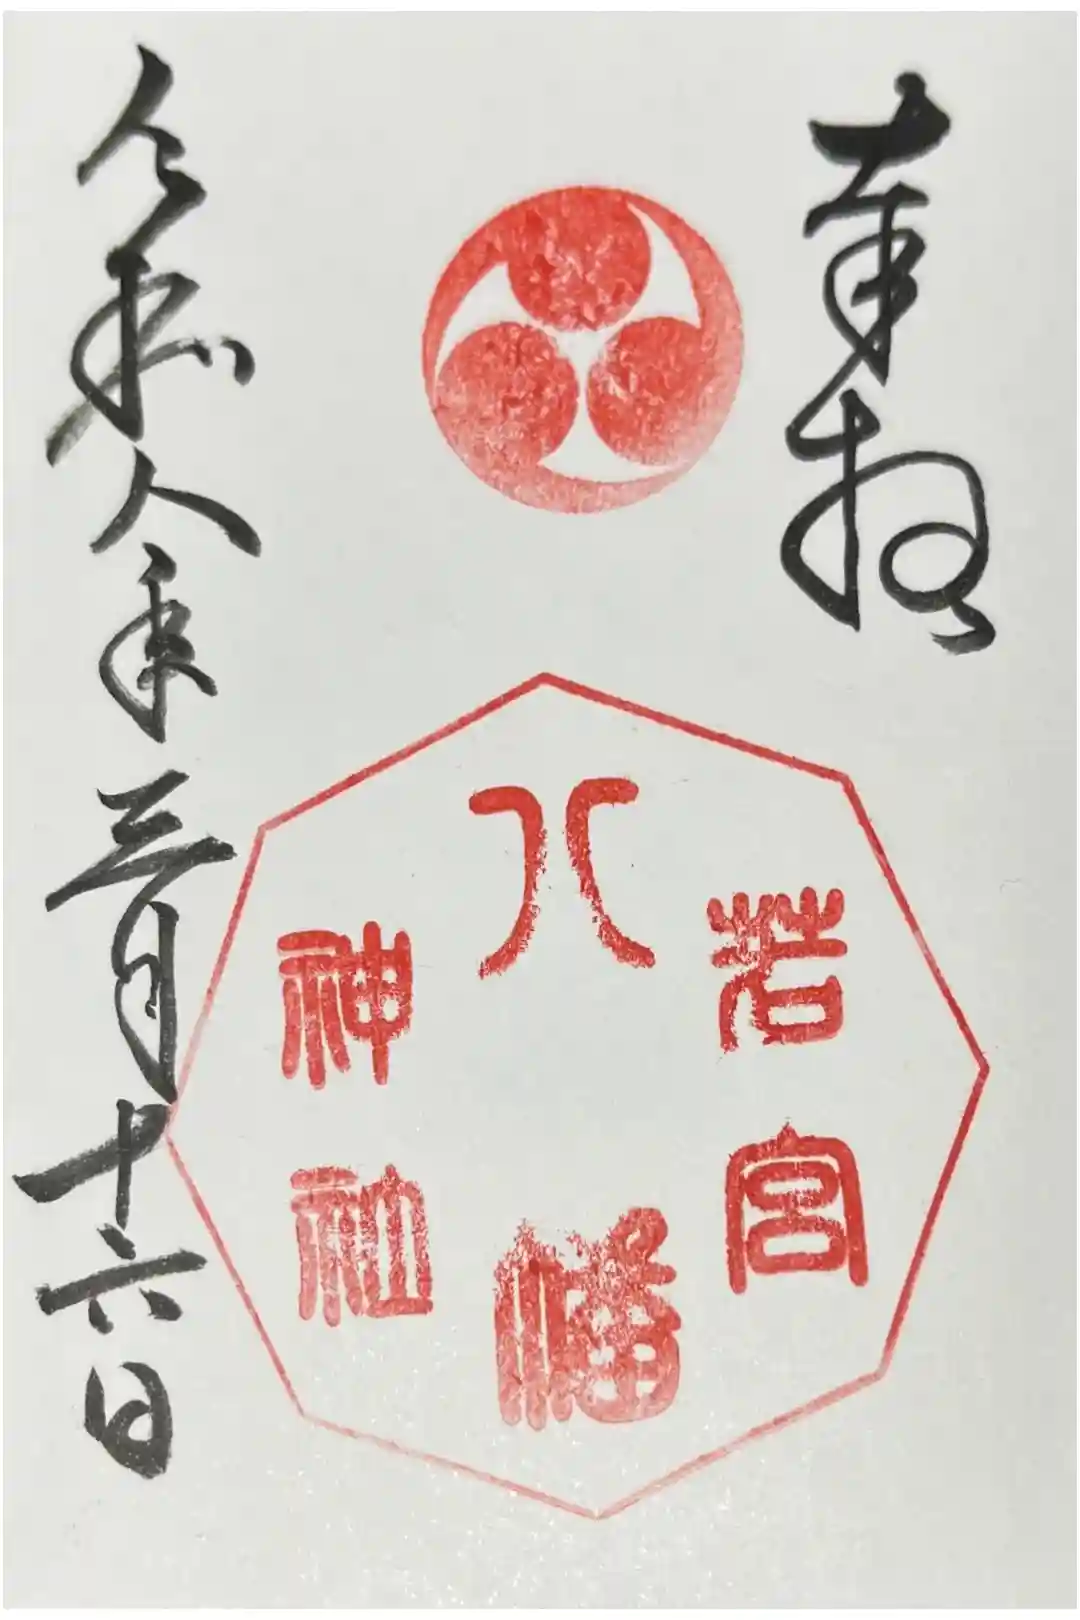 奉拝
若宮
八幡
神社
令和八年三月十六日